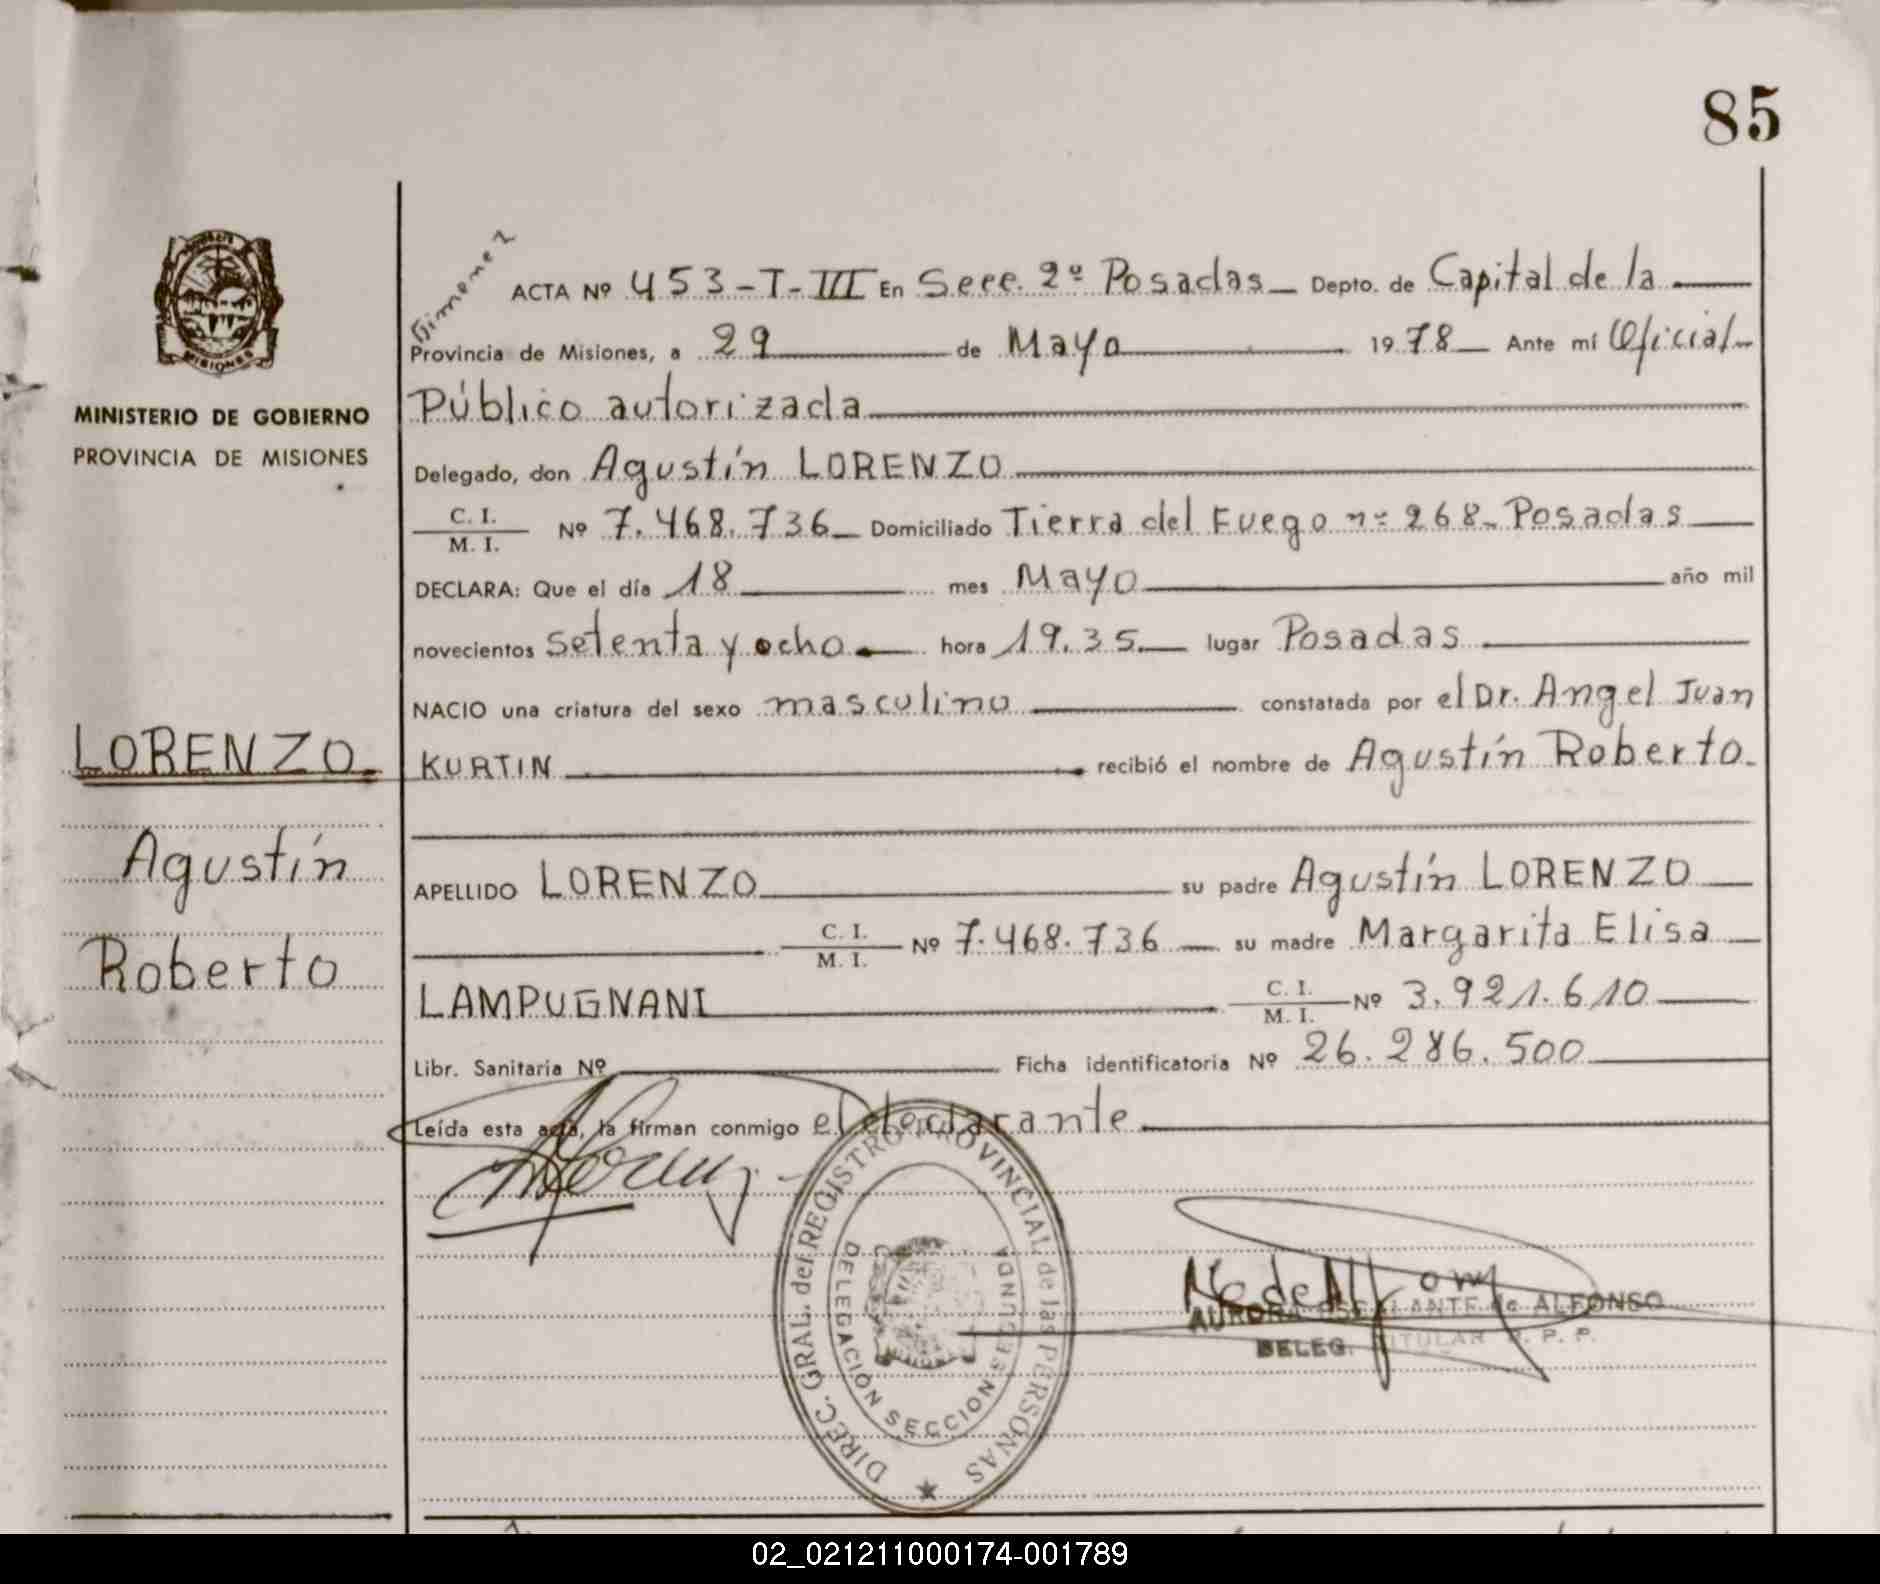 85
MISIONES
MINISTERIO DE GOBIERNO
PROVINCIA DE MISIONES
LORENZO
Agustín
Roberto
Gimenez
ACTA Nº 453-T-III En Secc. 2º Posadas Depto. de Capital de la
Provincia de Misiones, a 29 de Mayo 1978 Ante mí Oficial
Público autorizada
Delegado, don Agustín LORENZO
C. I.
M. I. Nº 7.468.736 Domiciliado Tierra del Fuego nº 268- Posadas
DECLARA: Que el día 18 mes Mayo año mil
novecientos setenta y ocho hora 19.35 lugar Posadas
NACIO una criatura del sexo masculino constatada por el Dr. Angel Juan
KURTIN recibió el nombre de Agustín Roberto.
APELLIDO LORENZO su padre Agustín LORENZO
C. I.
M. I. Nº 7.468.736 su madre Margarita Elisa
LAMPUGNANI C. I.
M. I. Nº 3.921.610
Libr. Sanitaria Nº Ficha identificatoria Nº 26.286.500
Leída esta acta, la firman conmigo el declarante
DIREC. GRAL. del REGISTRO PROVINCIAL de las PERSONAS
DELEGACIÓN SECCION SEGUNDA
AURORA de ALFONSO
DELEG. TITULAR R. P. P.
02_021211000174-001789